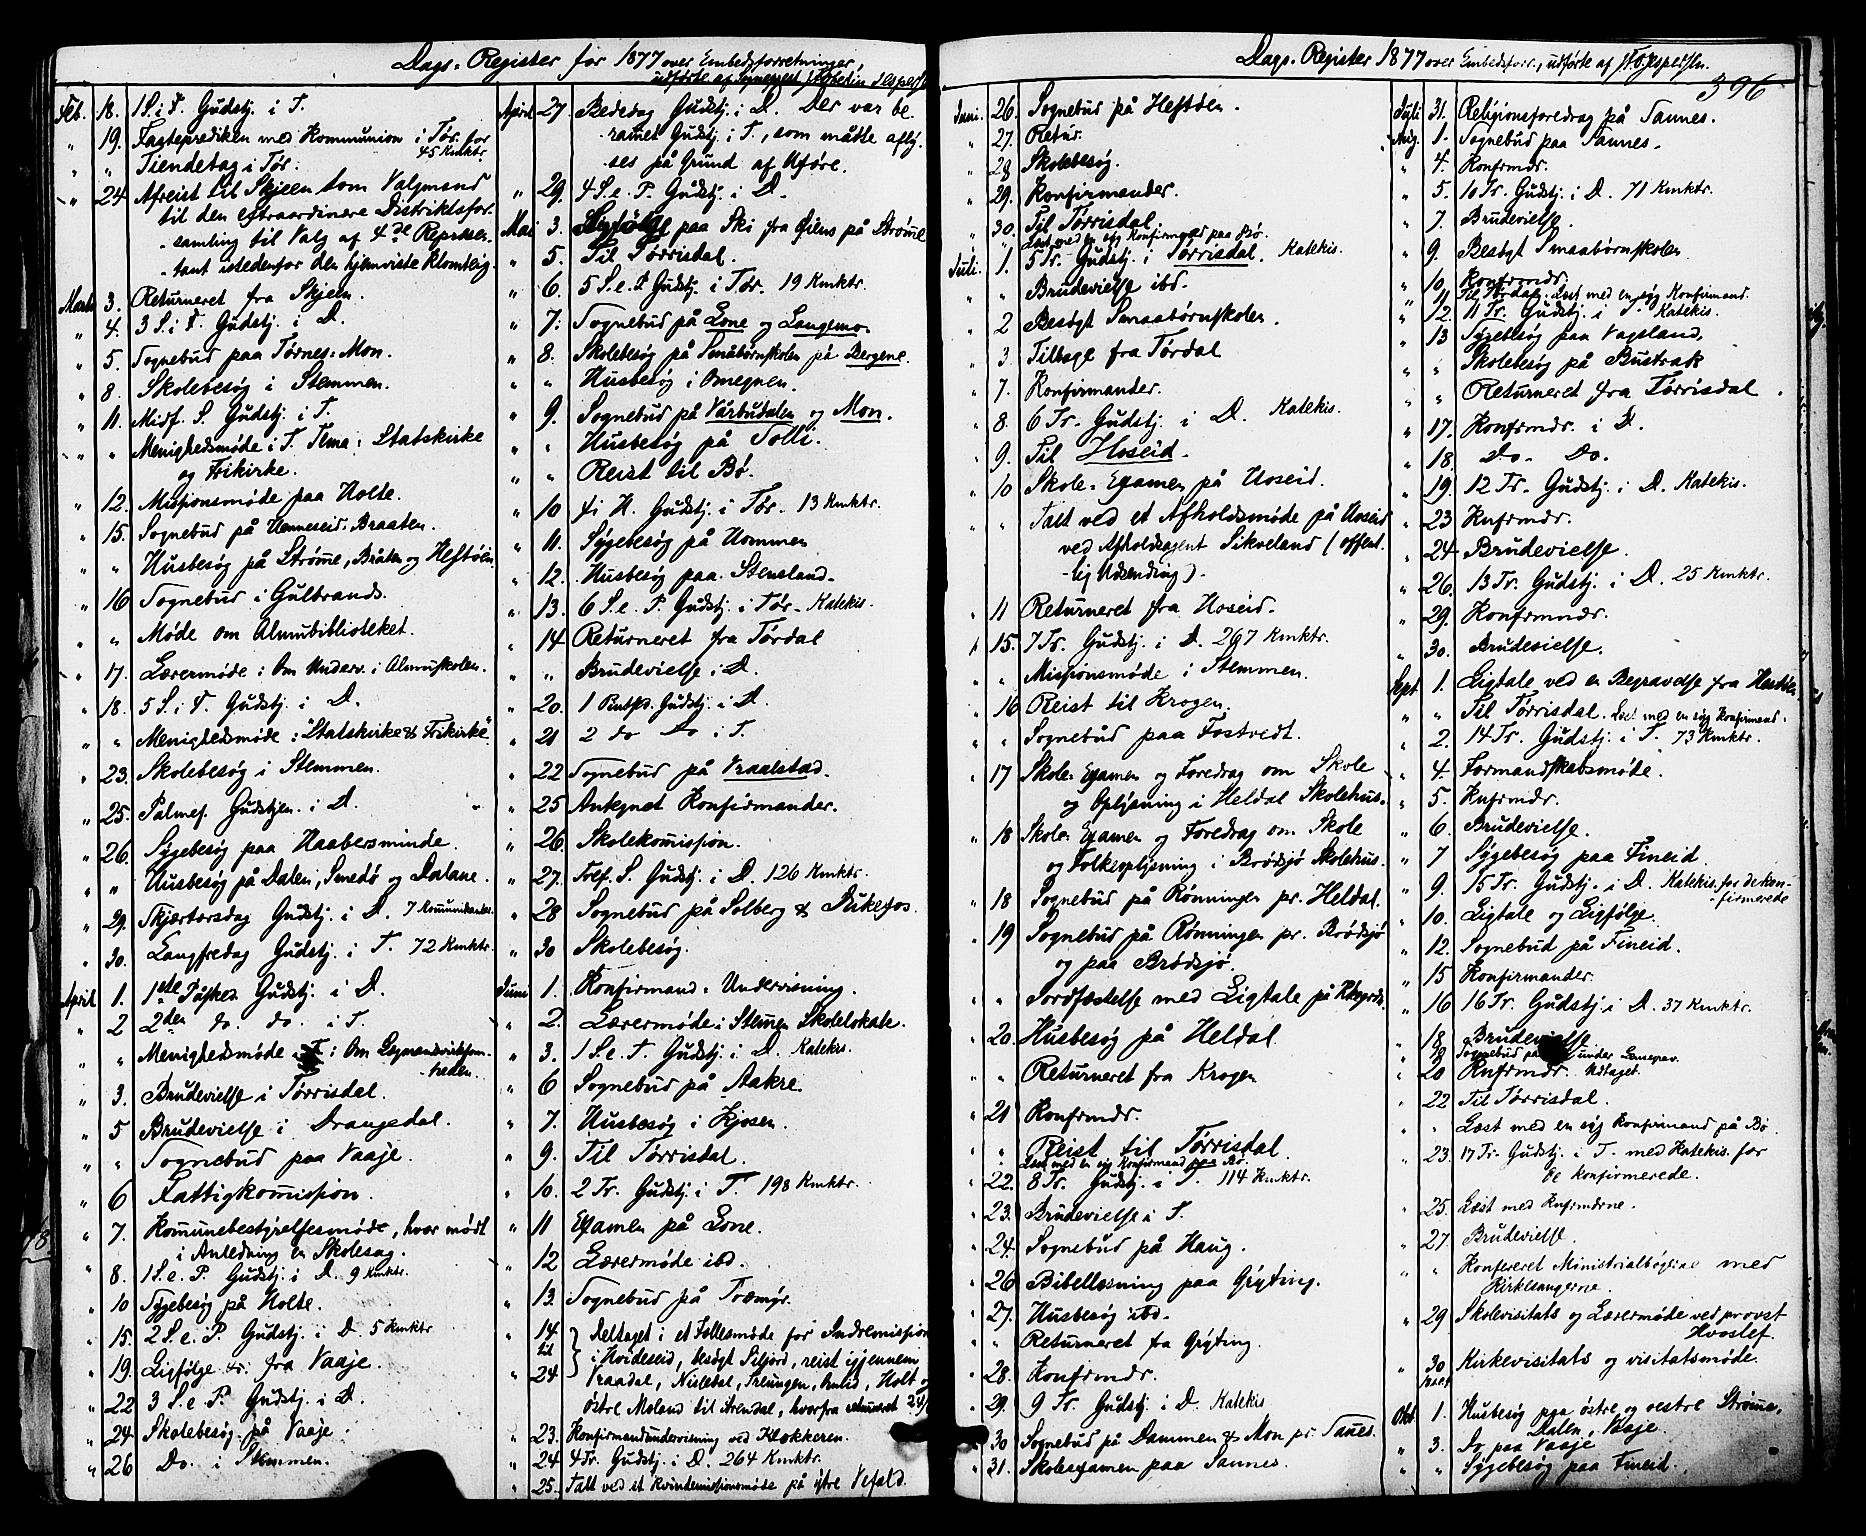 Dags-Register for 1877 over Embedsforretninger,
udførte af Sognepræst
Feb. 18. 1 S. i F. Gudstj. i T.
" 19. Fasteprædiken med Kommunion i Tør. for
45 Kmktr
" " Tiendetag i Tør.
" 24 Afreist til Skjeen som Valgmand
til den extraordinere Distriktsfor-
-samling til Valg af 4de Repræsen-
-tant istedenfor den hjemviste
Marts 3. Returneret fra Skjeen.
" 4. 3 S. i F. Gudstj. i D.
" 5. Sognebud paa Tørnes-Mon.
" 8. Skolebesøg i Stemmen.
" 11. Midf. S. Gudstj. i T.
" " Menighedsmøde i T. Tema: Statskirke
og Frikirke.
" 12. Missionsmøde paa Holte.
" 15. Sognebud på Henneseid-Braaten.
" " Husbesøg på Strømme, Bråten og Heftøen
" 16 Sognebud i Gulbrands.
" " Møde om Almubiblioteket.
" 17. Lærermøde: Om Underv. i Almuskolen.
" 18. 5 S. i F. Gudstj. i D.
" " Menighedsmøde: "Statskirke & Frikirke".
" 23. Skolebesøg i Stemmen.
" 25. Palmes. Gudstjen. i D.
" 26. Sygebesøg paa Haabersminde.
" " Husbesøg på Dalen, Smedø og Dalane.
" 29. Skjærtorsdag Gudstj. i D. 7 Kommunikanter.
" 30. Langfredag Gudstj. i T. 72 Kmktr.
April 1. 1ste Påsked. Gudstj. i D.
" 2 2den do. do. i T.
" " Menighedsmøde i T: Om Lægmandsvirksom-
-heden.
" 3. Brudevielse i Tørrisdal.
" 5 Brudevielse i Drangsdal.
" " Sognebud paa Vaaje.
" 6 Fattigkommission.
" 7. Kommunebestyrelsesmøde, hvor mødt
i Anledning en Skolesag.
" 8. 1 S. e. P. Gudstj. i D. 9 Kmktr.
" 10 Sygebesøg på Holte.
" 15. 2 S. e. P. Gudstj. i D. 5 Kmktr
" 19. Ligfølge fra Vaaje.
" 22 3 S. e. P. Gudstj. i D.
" 24 Skolebesøg på Vaaje.
" 26 Do. i Stemmen.
April 27. Bededag Gudstj. i D. Der var be-
-rammet Gudstj. i T., som måtte afly-
-ses på Grund af Uføre.
" 29. 4 S. e. P. Gudstj. i D.
Mai 3. Ligfølge paa Ski fra på Strømme
" 5. Til Tørrisdal.
" 6. 5 S. e. P. Gudstj. i Tør. 19 Kmktr.
" 7. Sognebud på Lone og Langemo.
" 8. Skolebesøg på Småbørnskolen på Bergene.
" " Husbesøg i Omegnen.
" 9. Sognebud på Vårbudalen og Mon.
" " Husbesøg på Tolli.
" " Reist til Bø.
" 10 Kr. H. Gudstj. i Tør. 13 Kmktr.
" 11. Sygebesøg på Hommen
" 12. Husbesøg paa Stensland.
" 13. 6 S. e. P. Gudstj. i Tør. Katekis.
" 14 Returneret fra Tørdal
" " Brudevielse i D.
" 20. 1 Pintsd. Gudstj. i D.
" 21 2 do do i T.
" 22 Sognebud på Vraalstad.
" 25 Antegnet Konfirmander.
" 26. Skolekommission.
" 27. Tref. S. Gudstj. i D. 126 Kmktr.
" 28 Sognebud på Solberg & Dukefos.
" 30 Skolebesøg.
Juni 1. Konfirmand-Undervisning.
" 2. Lærermøde i Stemmen Skolelokale.
" 3. 1 S. e. T. Gudstj. i D. Katekis.
" 6 Sognebud på Aakre.
" 7. Husbesøg i Kjosen.
" 9. Til Tørrisdal.
" 10. 2 Tr. Gudstj. i T. 198 Kmktr.
" 11 Examen på Lone.
" 12 Lærermøde ibd.
" 13. Sognebud på Træmyr.
" 14 til 24 Deltaget i et Fællesmøde for Indremission
i Hvideseid, besøgt Siljord, reist igjennem
Vraadal, Nissedal, Treungen, Åmlid, Holt og
østre Moland til Arendal, hvorfra returneret 24/
" 23. Konfirmandundervisning ved Klokkeren.
" 24 4 Tr. Gudstj. i D. 264 Kmktr.
" 25. Talt ved et Kvindemissionsmøde på østre Vefald.
Dags-Register 1877 over Embedsforr., udførte af
396
Juni 26. Sognebud på Heftøen.
" 27. Retur.
" 28 Skolebesøg.
" 29. Konfirmander.
" 30. Til Tørrisdal.
Læst med en syg Konfirmand paa Bø.
Juli 1. 5 Tr. Gudstj. i Tørrisdal. Katekis.
" " Brudevielse ibd.
" 2 Besøgt Smaabørnskolen.
" 3. Tilbage fra Tørdal
" 7. Konfirmander.
" 8. 6 Tr. Gudstj. i D. Katekis.
" 9. Til Hoseid.
" 10 Skole-Examen på Hoseid.
" " Talt ved et Afholdsmøde på Hoseid
ved Afholdsagent Sikveland (offent-
-lig Udsending).
" 11 Returneret fra Hoseid.
" 15. 7 Tr. Gudstj. i D. 267 Kmktr.
" " Missionsmøde i Stemmen.
" 16 Reist til Krogen.
" " Sognebud paa Fostvedt.
" 17 Skole-Examen og Foredrag om Skole
og Oplysning i Heldal Skolehus.
" 18 Skole-Examen og Foredrag om Skole
og Folkeoplysning i Brødsjø Skolehus.
" 18 Sognebud på Rønningen pr. Heldal.
" 19 Sognebud på Rønningen pr. Brødsjø
og paa Brødsjø.
" " Jordfæstelse med Ligtale på
" 20. Husbesøg på Heldal.
" " Returneret fra Krogen
" 21 Konfrmdr.
" " Reist til Tørrisdal
Læst med en syg Konfirmand paa Bø.
" 22. 8 Tr. Gudstj. i T. 114 Kmktr.
" 23. Brudevielse i T.
" 24. Sognebud på Haug.
" 26 Bibellæsning paa Grÿting.
" 27. Husbesøg ibd.
" " Returneret fra Grÿting.
" 28. Konfrmdr.
" 29. 9 Tr. Gudstj. i D. Katekis
" 30 Sognebud på Dammen & Mon pr. Sannes.
" 31. Skoleexamen paa Sannes.
Juli 31. Religionsforedrag på Sannes.
Aug. 1. Sognebud paa Sannes.
" 4. Konfrmdr.
" 5. 10 Tr. Gudstj. i D. 71 Kmktr.
" 7. Brudevielse.
" 9. Besøgt Smaabørnskolen
" 10. Konfrmdr.
" 11 Til Tørdal. Læst med en syg Konfirmand.
" 12. 11 Tr. Gudstj. i T. Katekis.
" 13 Sygebesøg paa Vaasland,
" " Skolebesøg på Bustrak
" " Returneret fra Tørrisdal.
" 17. Konfrmdr. i D.
" 18. Do. Do.
" 19. 12 Tr. Gudstj. i D. Katekis.
" 23 Knfrmdr.
" 24. Brudevielse.
" 26. 13 Tr. Gudstj. i D. 25 Kmktr.
" 29. Konfrmndr.
" 30. Brudevielse.
Sept 1. Ligtale ved en Begravelse fra
" " Til Tørrisdal. Læst med en syg Konfirmand.
" 2. 14 Tr. Gudstj. i T. 73 Kmktr.
" 4. Formandskabsmøde.
" 5. Knfrmdr.
" 6. Brudevielse.
" 7 Sygebesøg paa Fineid.
" 9. 15 Tr. Gudstj. i D. Katekis. for de kon-
-firmerede
" 10. Ligtale og Ligfølge.
" 12. Sognebud på Fineid.
" 15 Konfirmander.
" 16 16 Tr. Gudstj. i D. 37 Kmktr.
" 18. Brudevielse
" 19 Sognebud på under
" 20 Knfrmdr. Udtaget.
" 22 Til Tørrisdal.
" " Læst med en syg Konfirmand på Bø
" 23. 17 Tr. Gudstj. i T. med Katekis. for
de konfirmerede.
" 25. Læst med Knfrmdrne.
" 27 Brudevielse.
" " Konfereret Ministrialbøgerne med
Kirkesangerne.
" 29 Skolevisitats og Lærermøde ved provst
Hvoslef.
" 30 Kirkevisitats og visitatsmøde.
Okt 1. Husbesøg paa østre og vestre Strømme,
Dalen, Vaaje
" 3. Do paa Vaaje
" " Sygebesøg paa Fineid.